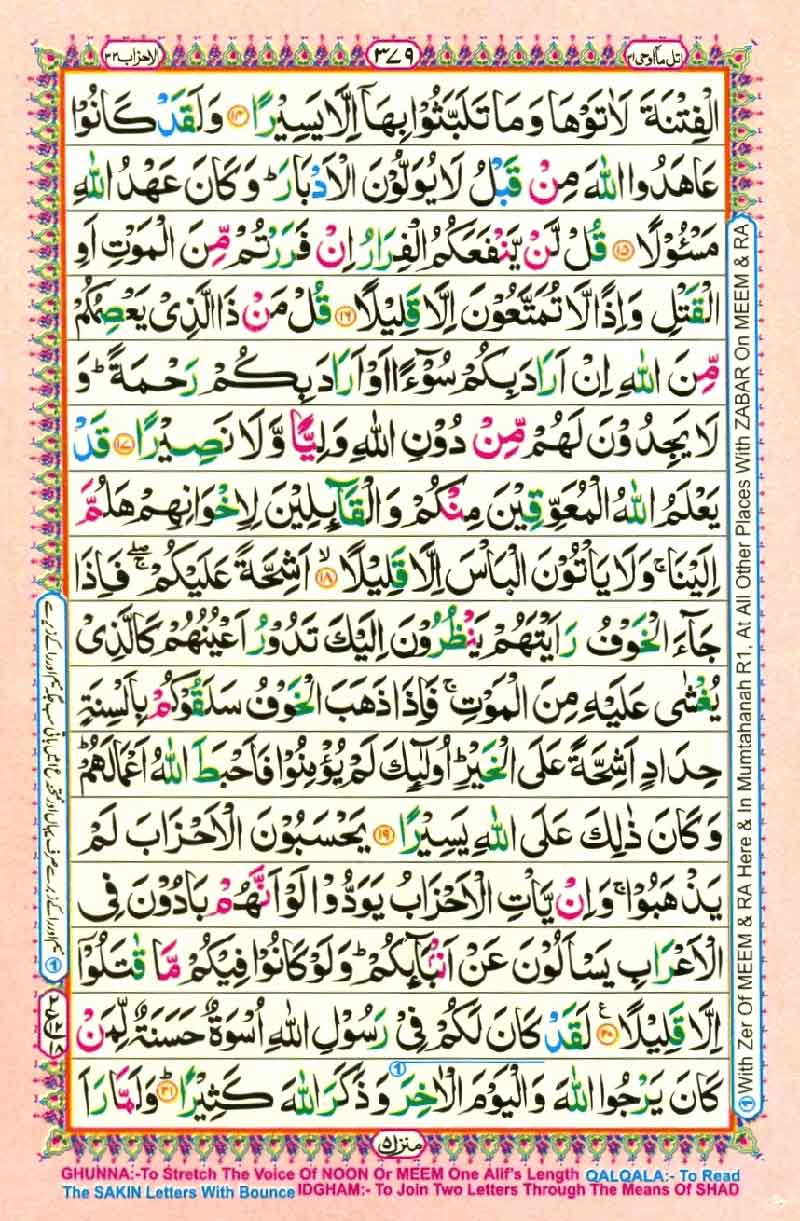 تل ماۤاوحی ۲۱
۳۷۹
الاحزاب ۳۳
الْفِتْنَةَ لَاٰتَوْهَا وَمَا تَلَبَّثُوْا بِهَاۤ اِلَّا يَسِيْرًا ۱۴ وَلَقَدْ كَانُوْا
عَاهَدُوا اللّٰهَ مِنْ قَبْلُ لَا يُوَلُّوْنَ الْاَدْبَارَ ؕ وَكَانَ عَهْدُ اللّٰهِ
مَسْـُٔوْلًا ۱۵ قُلْ لَّنْ يَّنْفَعَكُمُ الْفِرَارُ اِنْ فَرَرْتُمْ مِّنَ الْمَوْتِ اَوِ
الْقَتْلِ وَاِذًا لَّا تُمَتَّعُوْنَ اِلَّا قَلِيْلًا ۱۶ قُلْ مَنْ ذَا الَّذِىْ يَعْصِمُكُمْ
مِّنَ اللّٰهِ اِنْ اَرَادَ بِكُمْ سُوْٓءًا اَوْ اَرَادَ بِكُمْ رَحْمَةً ؕ وَ
لَا يَجِدُوْنَ لَهُمْ مِّنْ دُوْنِ اللّٰهِ وَلِيًّا وَّلَا نَصِيْرًا ۱۷ قَدْ
يَعْلَمُ اللّٰهُ الْمُعَوِّقِيْنَ مِنْكُمْ وَالْقَآٮِٕلِيْنَ لِاِخْوَانِهِمْ هَلُمَّ
اِلَيْنَا ۚ وَلَا يَاْتُوْنَ الْبَاْسَ اِلَّا قَلِيْلًا ۙ ۱۸ اَشِحَّةً عَلَيْكُمْ ۖ ۚ فَاِذَا
جَآءَ الْخَوْفُ رَاَيْتَهُمْ يَنْظُرُوْنَ اِلَيْكَ تَدُوْرُ اَعْيُنُهُمْ كَالَّذِىْ
يُغْشٰى عَلَيْهِ مِنَ الْمَوْتِ ۚ فَاِذَا ذَهَبَ الْخَوْفُ سَلَقُوْكُمْ بِاَلْسِنَةٍ
حِدَادٍ اَشِحَّةً عَلَى الْخَيْرِ ؕ اُولٰٓٮِٕكَ لَمْ يُؤْمِنُوْا فَاَحْبَطَ اللّٰهُ اَعْمَالَهُمْ ؕ
وَكَانَ ذٰلِكَ عَلَى اللّٰهِ يَسِيْرًا ۱۹ يَحْسَبُوْنَ الْاَحْزَابَ لَمْ
يَذْهَبُوْا ۚ وَاِنْ يَّاْتِ الْاَحْزَابُ يَوَدُّوْا لَوْ اَنَّهُمْ بَادُوْنَ فِى
الْاَعْرَابِ يَسْاَلُوْنَ عَنْ اَنْۢبَآٮِٕكُمْ ؕ وَلَوْ كَانُوْا فِيْكُمْ مَّا قٰتَلُوْۤا
اِلَّا قَلِيْلًا ۲۰ لَقَدْ كَانَ لَكُمْ فِىْ رَسُوْلِ اللّٰهِ اُسْوَةٌ حَسَنَةٌ لِّمَنْ
كَانَ يَرْجُوا اللّٰهَ وَالْيَوْمَ الْاٰخِرَ وَذَكَرَ اللّٰهَ كَثِيْرًا ؕ ۲۱ وَلَمَّا رَاَ
With Zer Of MEEM & RA Here & In Mumtahanah R1, At All Other Places With ZABAR On MEEM & RA
منزل ۵
GHUNNA:-To Stretch The Voice Of NOON Or MEEM One Alif's Length QALQALA:- To Read
The SAKIN Letters With Bounce IDGHAM:- To Join Two Letters Through The Means Of SHAD